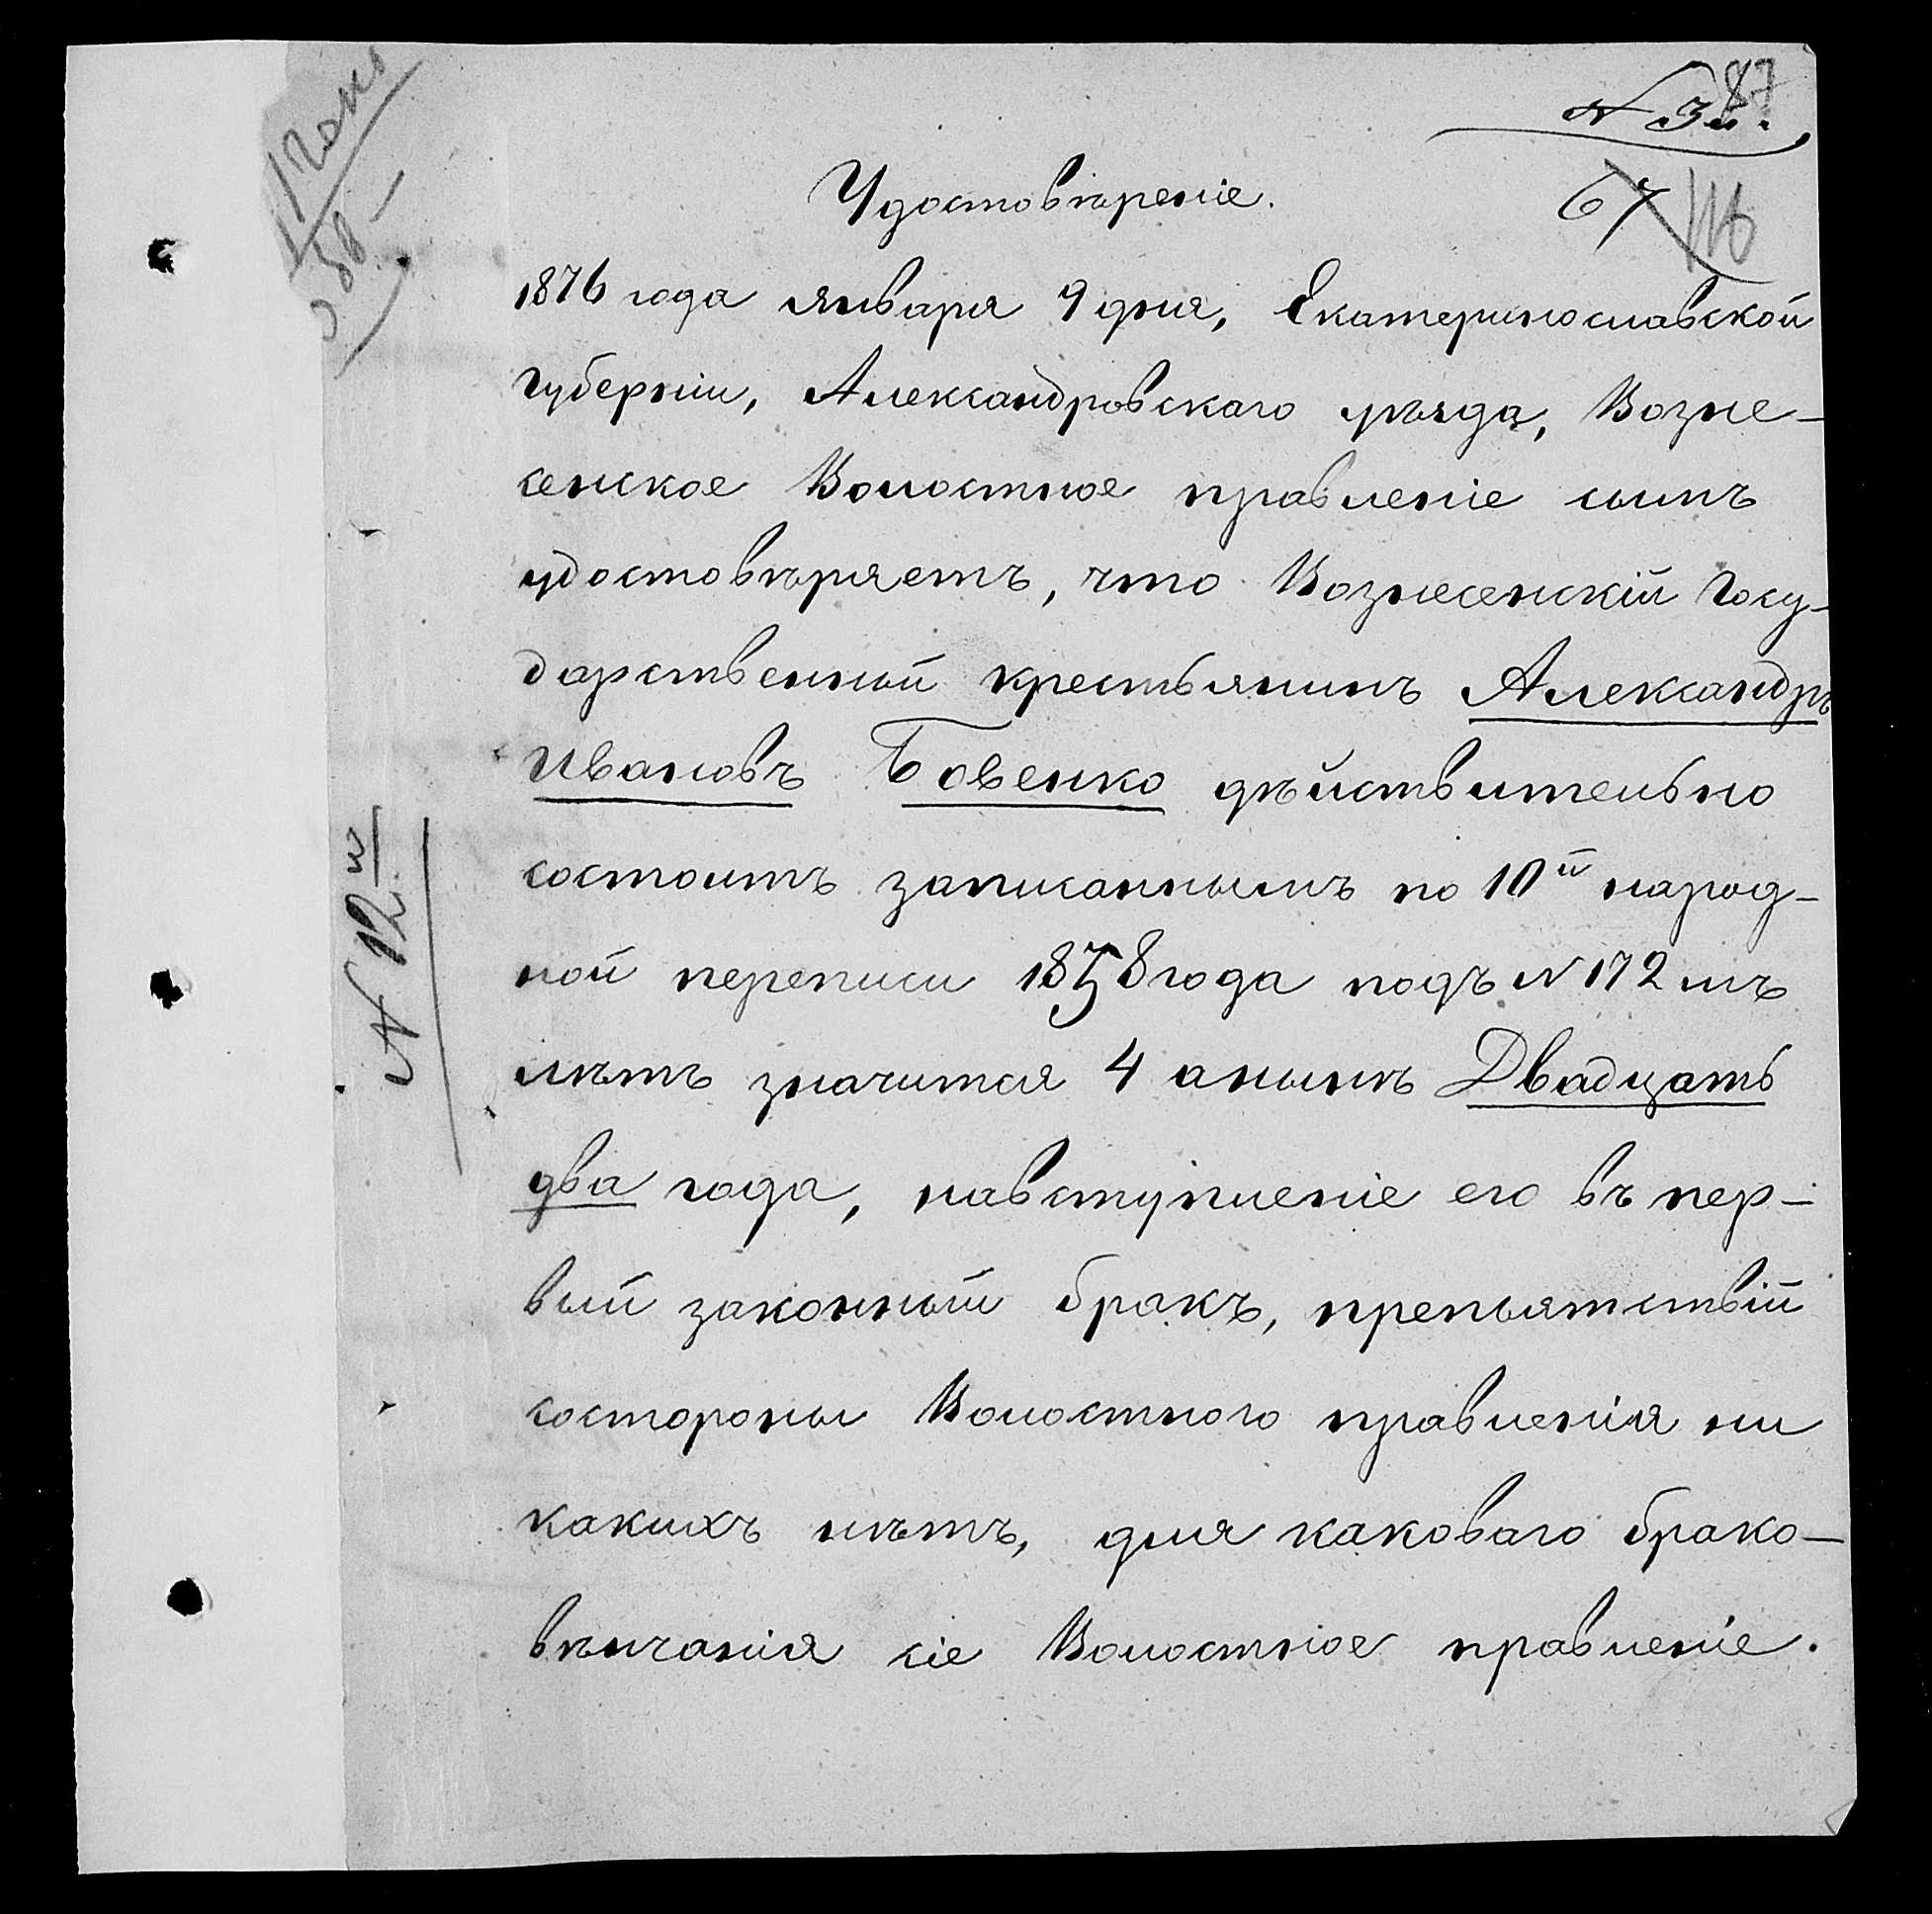 87
N 3й.
Удостовѣреніе.
67 116
1876 года января 9 дня, Екатеринославской
губерніи, Александровскаго уѣзда, Возне-
сенское Волостное правленіе симъ
удостовѣряетъ, что Вознесенскій Госу-
дарственный крестьянинъ Александръ
Ивановъ Бовенко дѣйствительно
состоитъ записаннымъ по 10й народ-
ной переписи 1858 года подъ N 172 мъ
лѣтъ значится 4 анынѣ Двадцать
два года, навступленіе его въ пер-
вый законный бракъ, препятствій
состороны Волостного правленія ни
какихъ нѣтъ, для каковаго брако-
вѣнчанія сіе Волостное правленіе.
N 12й